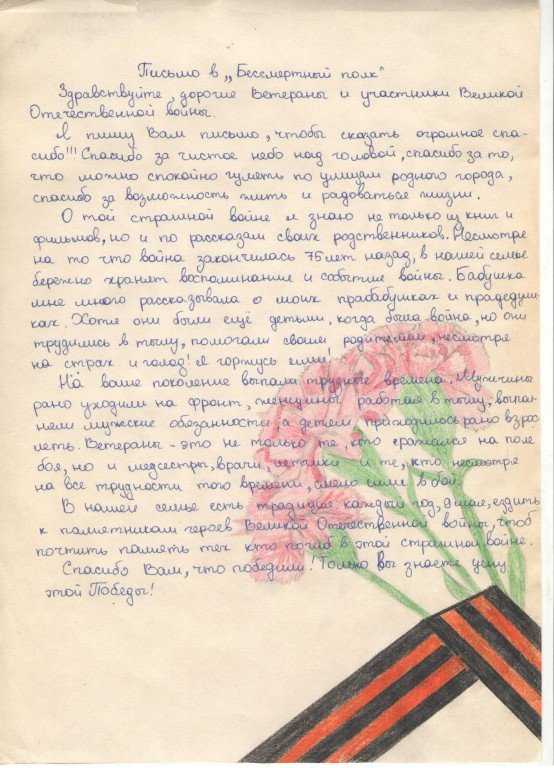 Письмо в „Бессмертный полк"
Здравствуйте, дорогие ветераны и участники Великой
Отечественной войны.
Я пишу Вам письмо, чтобы сказать огромное спа-
сибо!!! Спасибо за чистое небо над головой, спасибо за то,
что можно спокойно гулять по улицам родного города,
спасибо за возможность жить и радоваться жизни.
О той страшной войне я знаю не только из книг и
фильмов, но и по рассказам своих родственников. Несмотря
на то что война закончилась 75 лет назад, в нашей семье
бережно хранят воспоминание и событие войны. Бабушка
мне много рассказывала о моих прабабушках и прадедуш-
ках. Хотя они были ещё детьми, когда была война, но они
трудились в тылу, помогали своим родителям, несмотря
на страх и голод! Я горжусь ими!
На ваше поколение выпали трудные времена. Мужчины
рано уходили на фронт, женщины работая в тылу, выпол-
няли мужские обязанности, а детям приходилось рано взрос-
леть. Ветераны - это не только те кто сражался на поле
боя, но и медсестры, врачи, летчики и те, кто несмотря
на все трудности того времени, смело шли в бой.
В нашей семье есть традиция, каждый год, 9 мая, ездить
к памятникам героев Великой Отечественной войны, чтоб
почтить память тех кто погиб в этой страшной войне.
Спасибо Вам, что победили! Только вы знаете цену
этой Победы!